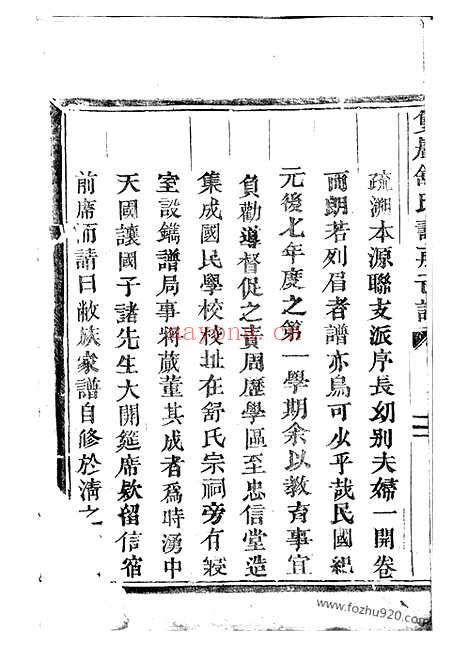 疏溯本源聯支派序長幼別夫婦一開卷
而朗若列眉者譜亦烏可少乎哉民國紀
元後七年度之第一學期余以教育事宜
負勸導督促之責周歷學區至忠信堂造
集成國民學校校址在舒氏宗祠旁有寢
室設鐫譜局事將蕆董其成者爲時湧中
天國讓國子諸先生大開筵席欵留信宿
前席而請曰敝族家譜自修於淸之
www.fozhu920.com